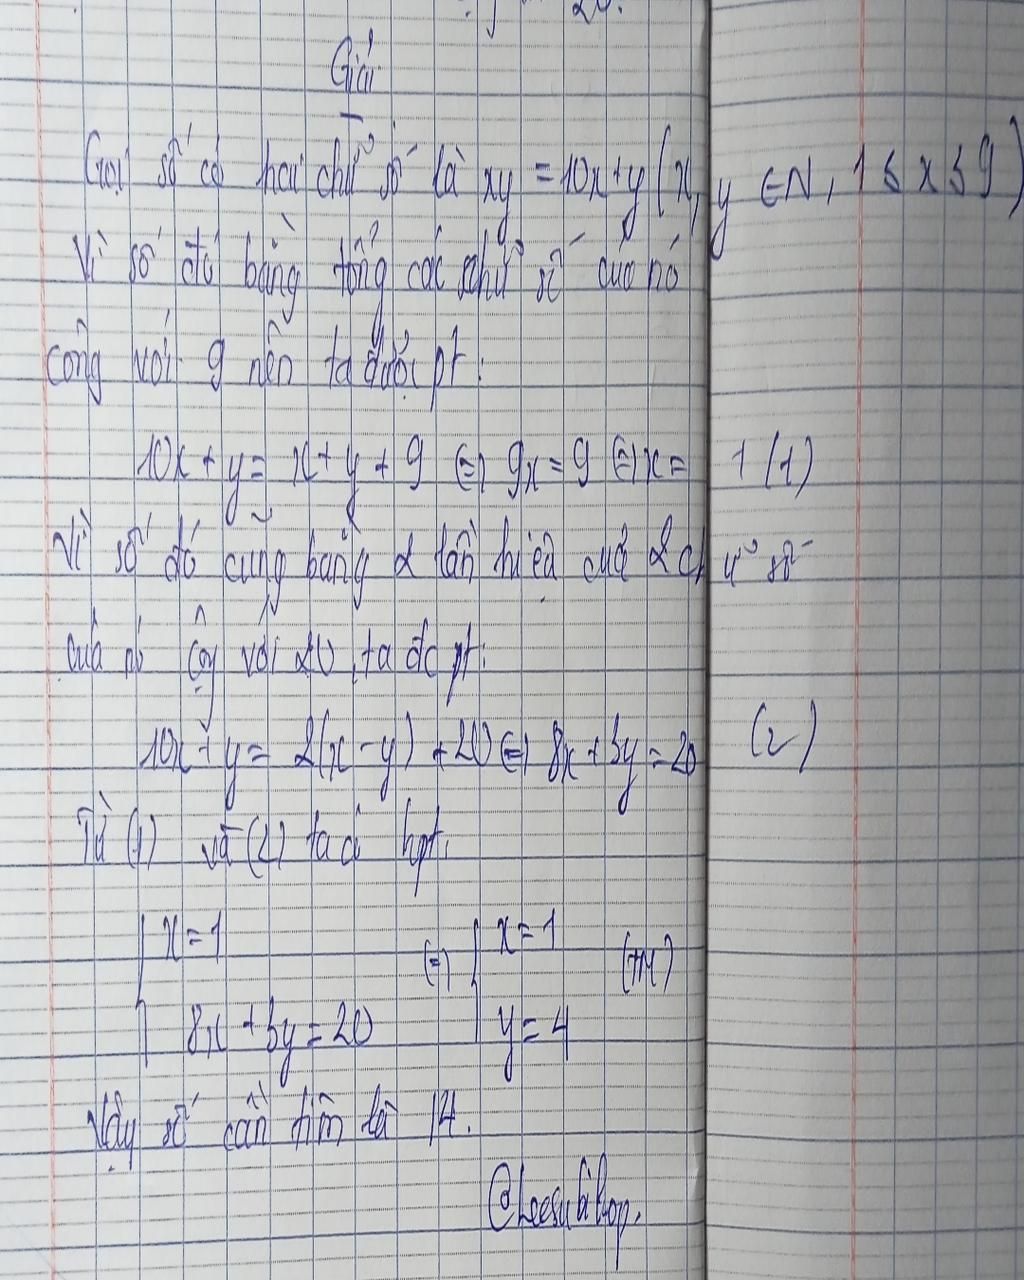 20.
Giải
Gọi số có hai chữ số là xy = 10x + y (x, y ∈ N, 1 ≤ x ≤ 9)
Vì số đó bằng tổng các chữ số của nó
cộng với 9 nên ta được pt:
10x + y = x + y + 9 ⇔ 9x = 9 ⇔ x = 1 (1)
Vì số đó cũng bằng 2 lần hiệu của 2 chữ số
của nó cộng với 20, ta đc pt:
10x + y = 2(x - y) + 20 ⇔ 8x + 3y = 20 (2)
Từ (1) và (2) ta có hpt:
x = 1 ⇔ x = 1 (TM)
8x + 3y = 20 y = 4
Vậy số cần tìm là 14.